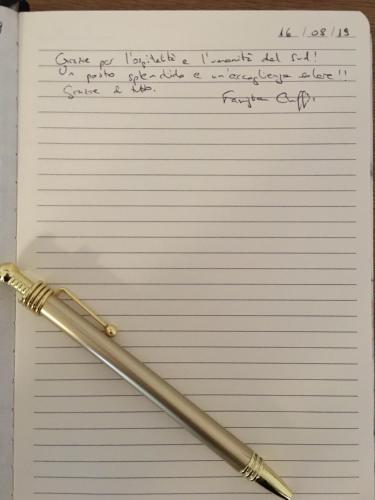 16/08/19
Grazie per l'ospitalità e l'umanità del Sud!
Un posto splendido e un'accoglienza !!
Grazie di tutto.
Famiglia